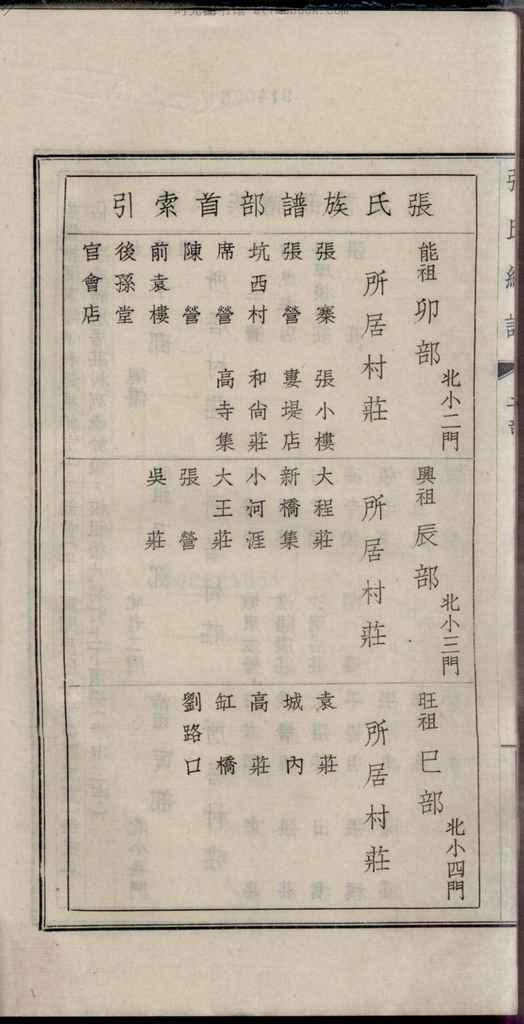 張氏族譜部首索引
能祖 卯部 北小二門
所居村莊
張寨 張小樓
張營 婁堤店
坑西村 和尙莊
席營 高寺集
陳營
前袁樓
後孫堂
官會店
興祖 辰部 北小三門
所居村莊
大程莊
新橋集
小河涯
大王莊
張營
吳莊
旺祖 巳部 北小四門
所居村莊
袁莊
城內
高莊
缸橋
劉路口